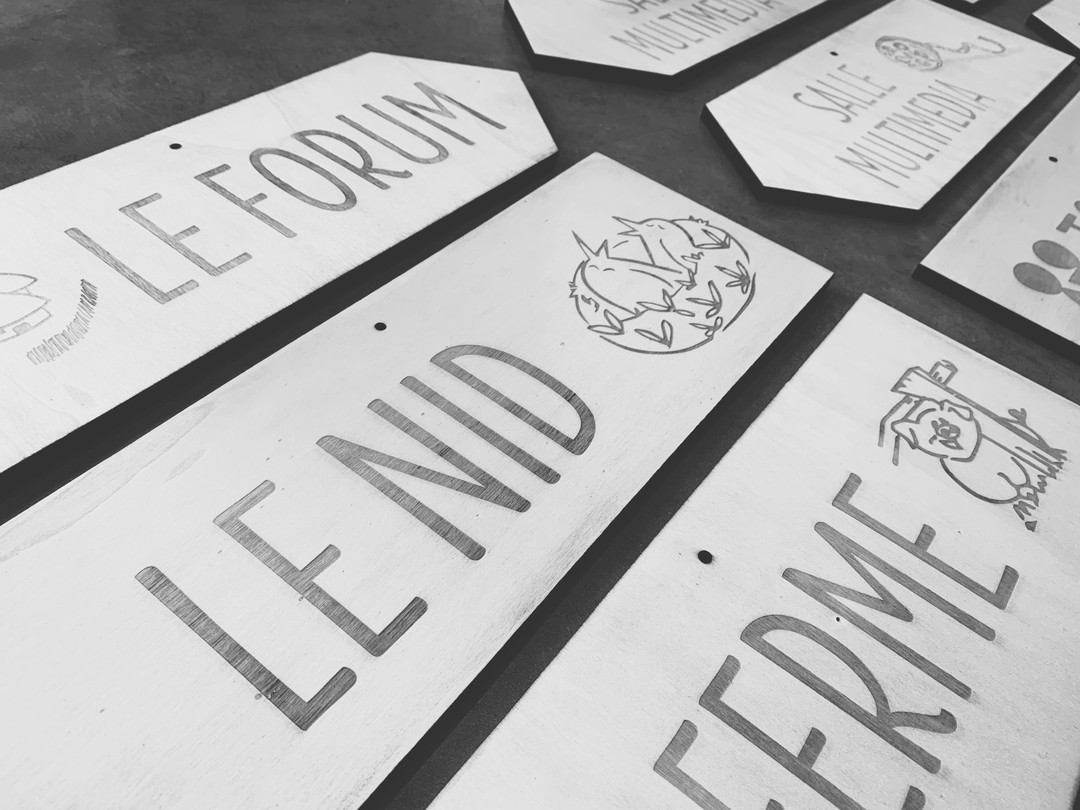 MULTIMEDIA
SALLE
MULTIMEDIA
LE FORUM
LE NID
FERME